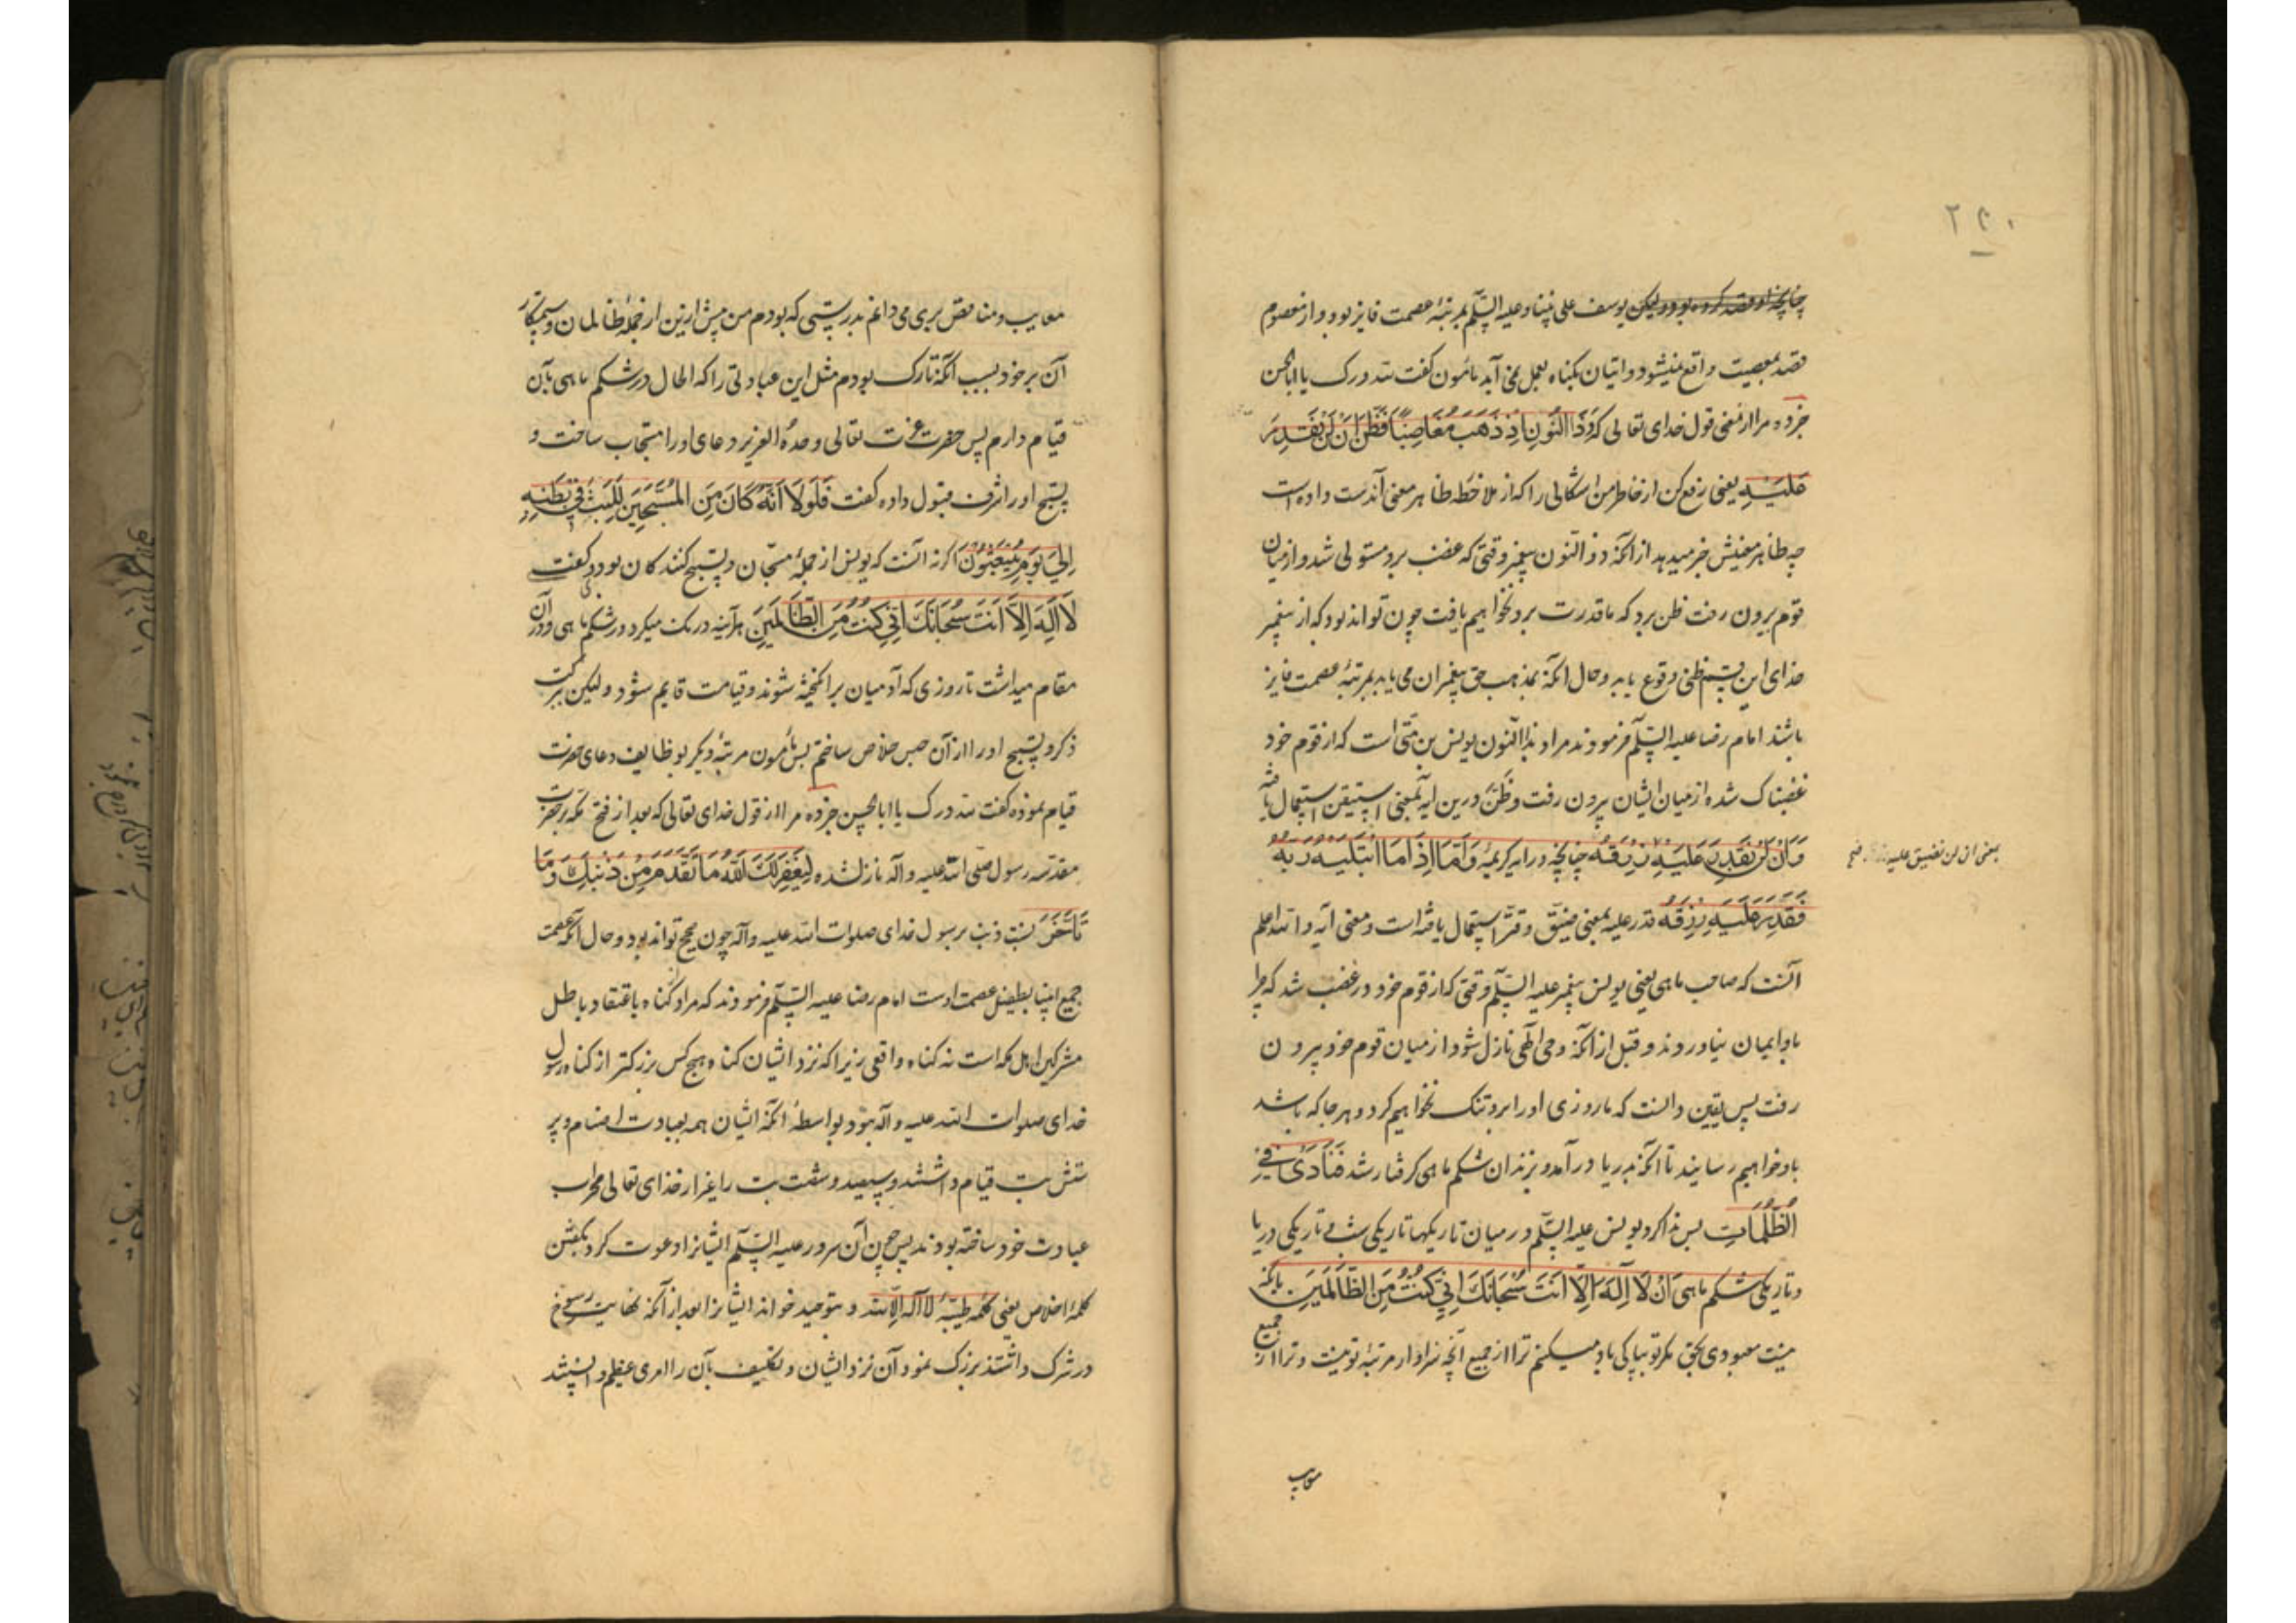 ۲۴۰
چنانچه او قصد کرده بود و لیکن یوسف علی نبینا و علیه السّلم بمرتبهٔ عصمت فایز بود و از معصوم
قصد بمعصیت واقع نمیشود و اتیان بگناه بعمل نمی آید مأمون گفت لله درک یا اباالحسن
خبر ده مرا از معنی قول خدای تعالی که وَذَا النُّونِ اِذْ ذَهَبَ مُغَاضِبًا فَظَنَّ اَنْ لَنْ نَقْدِرَ
عَلَیْهِ یعنی رفع کن از خاطر من اشکالی را که از ملاحظه ظاهر معنی آن دست داده است
چه ظاهر معنیش خبر میدهد از آنکه ذو النّون پیغمبر وقتی که غضب برو مستولی شد و از میان
قوم بیرون رفت ظن برد که ما قدرت برو نخواهیم یافت چون تواند بود که از پیغمبر
خدای این قسم ظنی وقوع یابد و حال آنکه بمذهب حق پیغمبران می باید بمرتبهٔ عصمت فایز
باشند امام رضا علیه السّلم فرمودند مراد بذا النّون یونس بن متّی است که از قوم خود
غضبناک شده از میان ایشان بیرون رفت و ظَنَّ درین آیه بمعنی استیقن استعمال یافته
وَاَنْ لَنْ نَقْدِرَ عَلَیْهِ رِزْقَهُ چنانچه در آیه کریمهٔ وَاَمَّا اِذَا مَا ابْتَلَیهُ رَبُّهُ
یعنی ان لن نضیق علیه رزقه صح
فَقَدَرَ عَلَیْهِ رِزْقَهُ قدر علیه بمعنی ضیّق و قتّر استعمال یافته است و معنی آیه والله اعلم
آنست که صاحب ماهی یعنی یونس پیغمبر علیه السّلم وقتی که از قوم خود در غضب شد که چرا
باو ایمان نیاوردند و قبل از آنکه وحی الهی نازل شود از میان قوم خود بیرون
رفت پس یقین دانست که ما روزی او را برو تنک نخواهیم کرد و هر جا که باشد
باو خواهیم رسانید تا آنکه بدریا درآمد و بزندان شکم ماهی گرفتار شد فَنَادَی فِی
الظُّلُمَاتِ پس ندا کرد یونس علیه السّلم در میان تاریکیها تاریکی شب و تاریکی دریا
و تاریکی شکم ماهی اَنْ لَا اِلَهَ اِلَّا اَنْتَ سُبْحَانَکَ اِنِّی کُنْتُ مِنَ الظَّالِمِینَ بآنکه
نیست معبودی بحق مگر تو بپاکی یاد میکنم ترا از جمیع آنچه نه سزاوار مرتبهٔ تو نیست و ترا از جمیع
معایب
معایب و مناقص بری می دانم بدرستی که بودم من پیش ازین از جملهٔ ظالمان و ستمکار
آن بر خود بسبب آنکه تارک بودم مثل این عبادتی را که الحال در شکم ماهی بآن
قیام دارم پس حضرت عزت تعالی وحدهُ العزیز دعای او را مستجاب ساخت و
تسبیح او را شرف قبول داده گفت فَلَوْلَا اَنَّهُ کَانَ مِنَ الْمُسَبِّحِینَ لَلَبِثَ فِی بَطْنِهِ
اِلَی یَوْمِ یُبْعَثُونَ اگر نه آنست که یونس از جملهٔ مسبّحان و تسبیح کنندکان بود و گفت
لَا اِلَهَ اِلَّا اَنْتَ سُبْحَانَکَ اِنِّی کُنْتُ مِنَ الظَّالِمِینَ هرآینه درنک میکرد در شکم ماهی و در آن
مقام میداشت تا روزی که آدمیان برانکیخته شوند و قیامت قایم شود و لیکن ببرکت
ذکر و تسبیح او را از آن حبس خلاص ساختم پس مأمون مرتبهٔ دیکر بوظایف دعای حضرت
قیام نموده گفت لله درک یا اباالحسن خبر ده مرا از قول خدای تعالی که بعد از فتح مکه بر حضرت
مقدسه رسول صلی الله علیه و آله نازل شده لِیَغْفِرَ لَکَ اللّهُ مَا تَقَدَّمَ مِنْ ذَنْبِکَ وَ مَا
تَاَخَّرَ نسبت ذنب برسول خدای صلوات الله علیه و آله چون صحیح تواند بود و حال آنکه عصمت
جمیع انبیا بطفیل عصمت اوست امام رضا علیه السّلم فرمودند که مراد گناه باعتقاد باطل
مشرکین اهل مکه است نه گناه واقعی زیرا که نزد ایشان گناه هیچ کس بزرکتر از گناه رسول
خدای صلوات الله علیه و آله نبود بواسطهٔ آنکه ایشان همه بعبادت اصنام و پر
ستش بت قیام داشتند و سیصد و شصت بت را غیر از خدای تعالی محراب
عبادت خود ساخته بودند پس چون آن سرور علیه السّلم ایشانرا دعوت کرد بگفتن
کلمهٔ اخلاص یعنی کلمهٔ طیبهٔ لا اله الا الله و بتوحید خواند ایشانرا بعد از آنکه نهایت رسوخ
در شرک داشتند بزرک نمود آن نزد ایشان و تکلیف بآن را امری عظیم دانستند